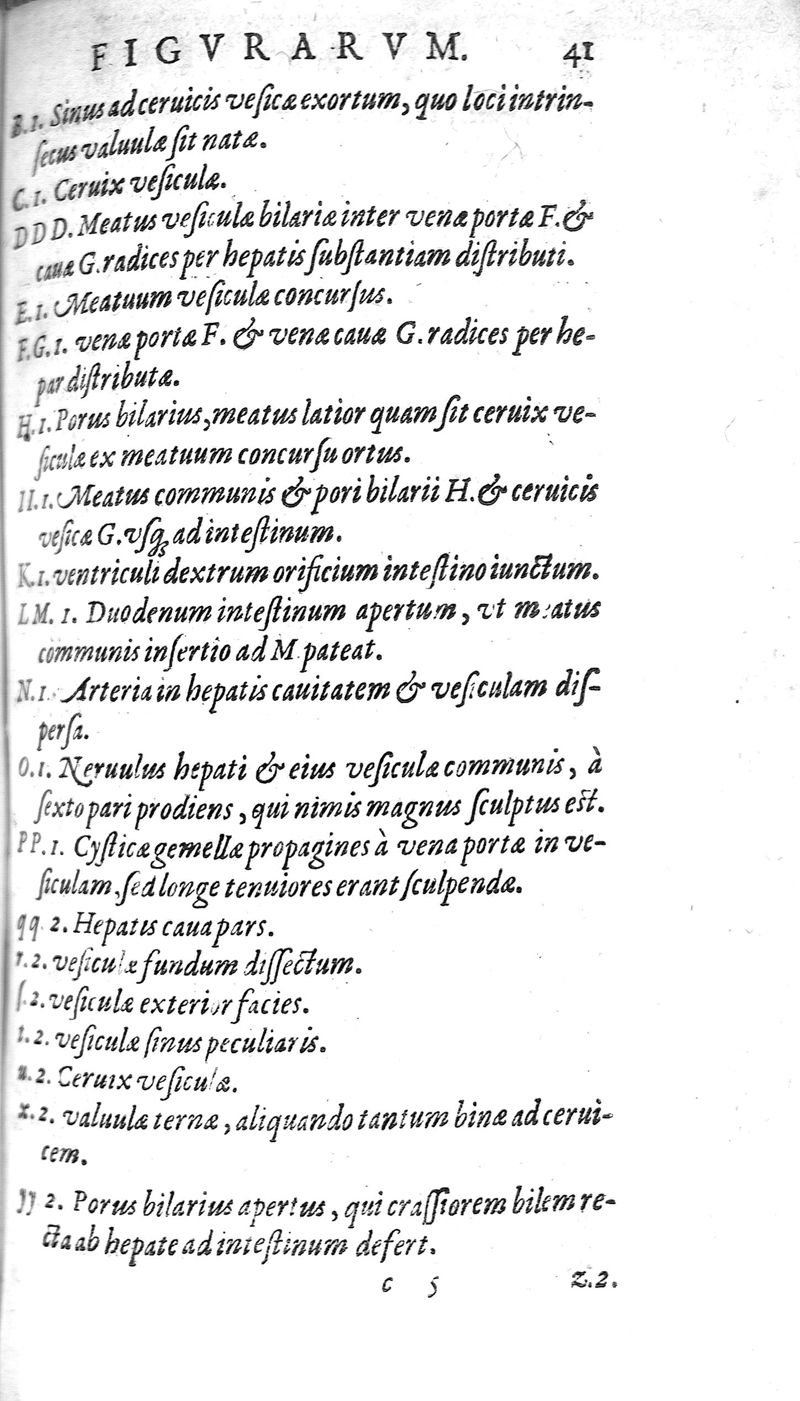 FIGVRARVM. 41
B.1. Sinus ad ceruicis vesicæ exortum, quo loci intrin-
secus valuulæ sit natæ.
C.1. Ceruix vesiculæ.
D D D. Meatus vesiculæ bilariæ inter venæ portæ F. &
cauæ G. radices per hepatis substantiam distributi.
E.1. Meatuum vesiculæ concursus.
F.G.1. venæ portæ F. & venæ cauæ G. radices per he-
par distributæ.
H.1. Porus bilarius, meatus latior quam sit ceruix ve-
siculæ ex meatuum concursu ortus.
II.1. Meatus communis & pori bilarii H. & ceruicis
vesicæ G. vsq; ad intestinum.
K.1. ventriculi dextrum orificium intestino iunctum.
LM. 1. Duodenum intestinum apertum, vt meatus
communis insertio ad M pateat.
N.1. Arteria in hepatis cauitatem & vesiculam dis-
persa.
O.1. Neruulus hepati & eius vesiculæ communis, à
sexto pari prodiens, qui nimis magnus sculptus est.
PP.1. Cysticæ gemellæ propagines à vena portæ in ve-
siculam, sed longe tenuiores erant sculpendæ.
qq 2. Hepatis caua pars.
r.2. vesiculæ fundum dissectum.
s.2. vesiculæ exterior facies.
t.2. vesiculæ sinus peculiaris.
u.2. Ceruix vesiculæ.
x.2. valuulæ ternæ, aliquando tantum binæ ad cerui-
cem.
yy 2. Porus bilarius apertus, qui crassiorem bilem re-
cta ab hepate ad intestinum defert.
c 5 Z.2.